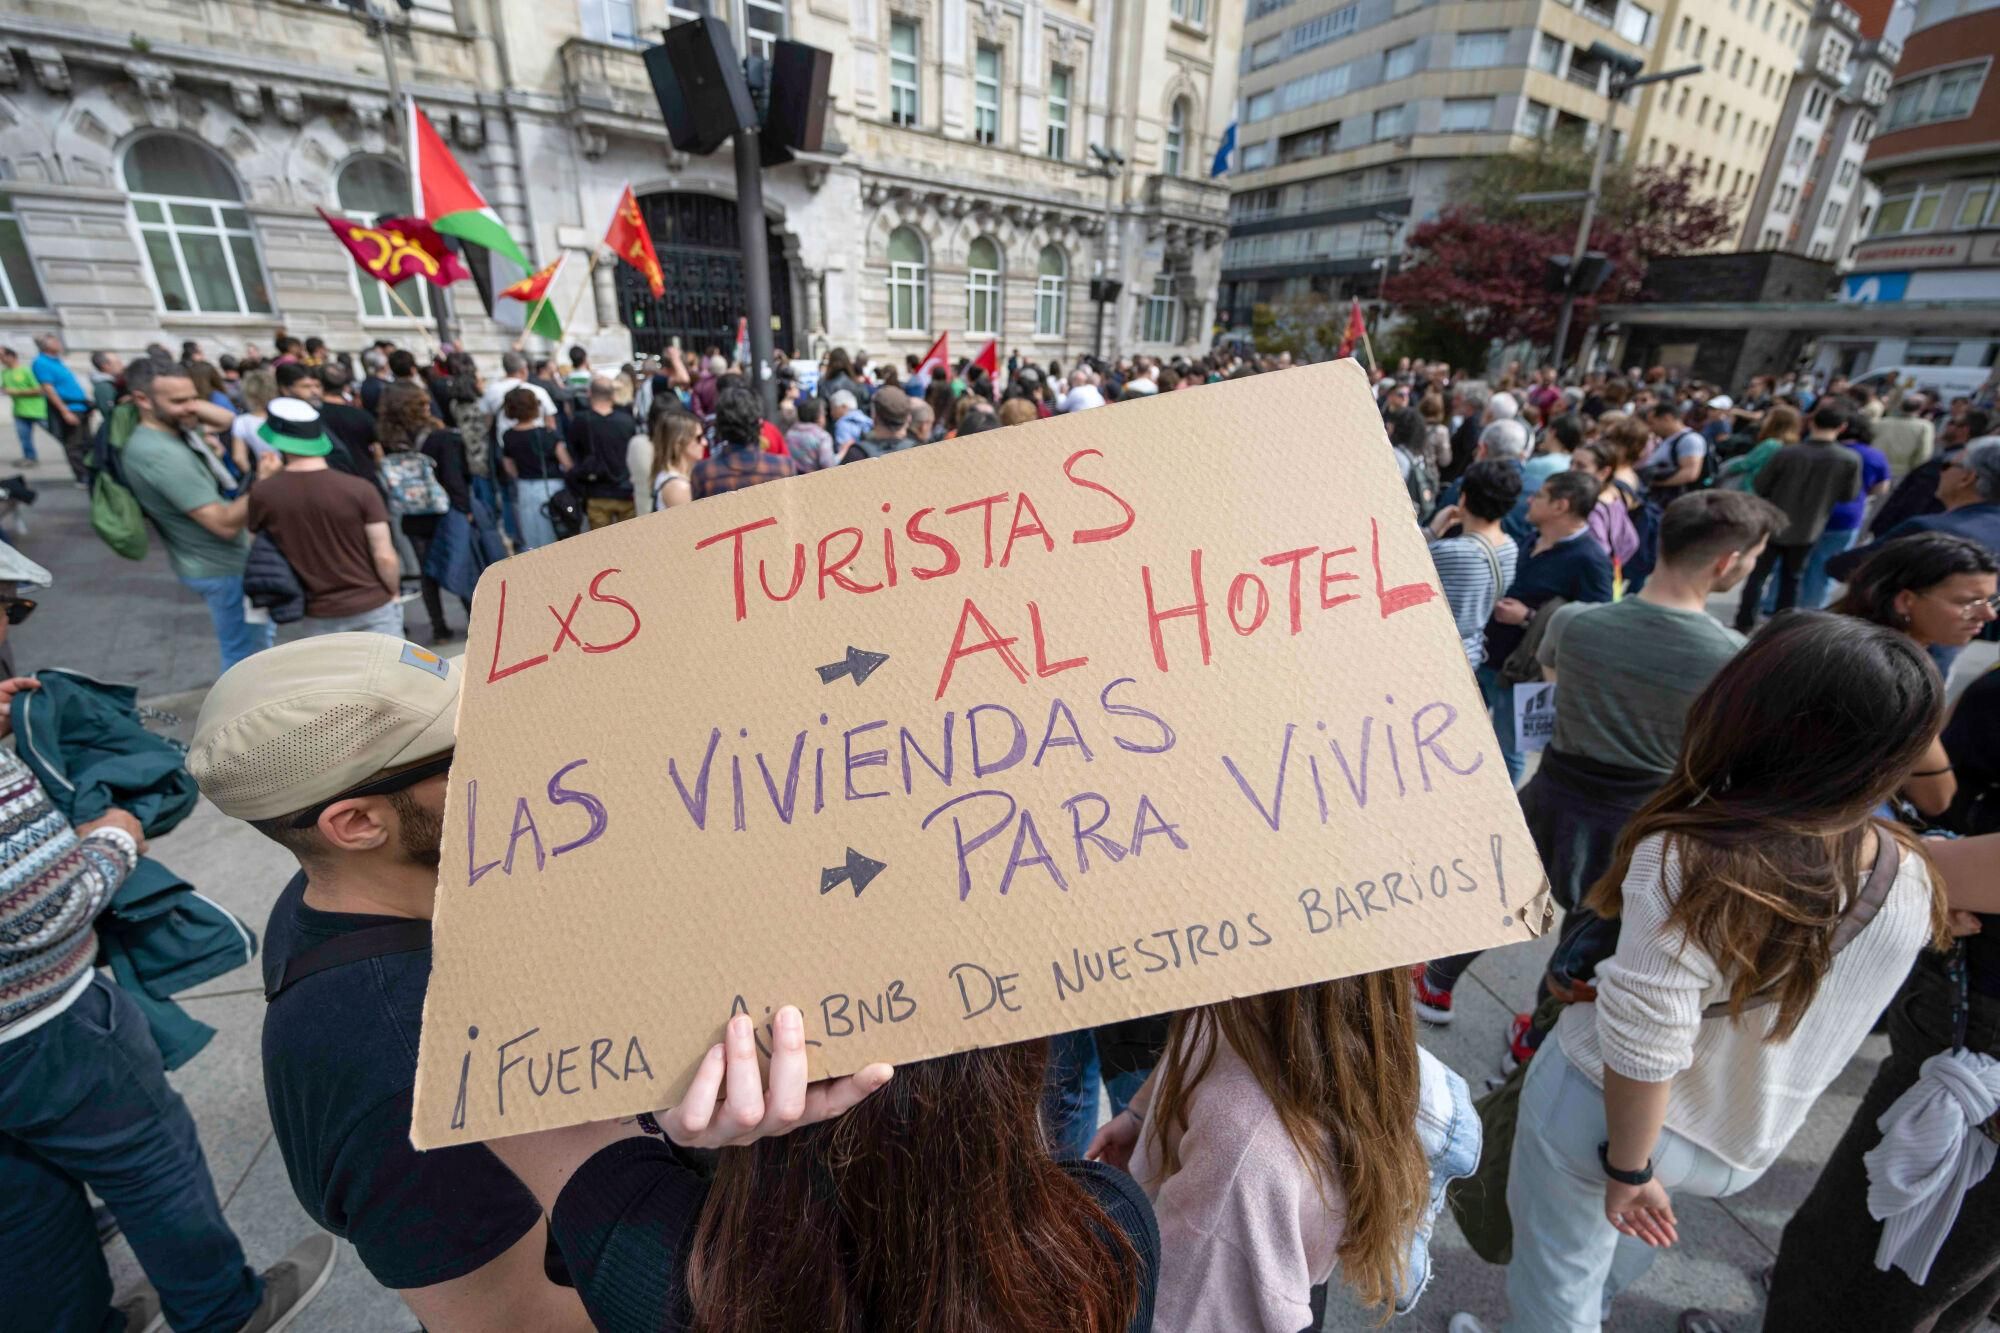 LxS TURISTAS
AL HOTEL
LAS VIVIENDAS
PARA VIVIR
¡FUERA AIRBNB DE NUESTROS BARRIOS!